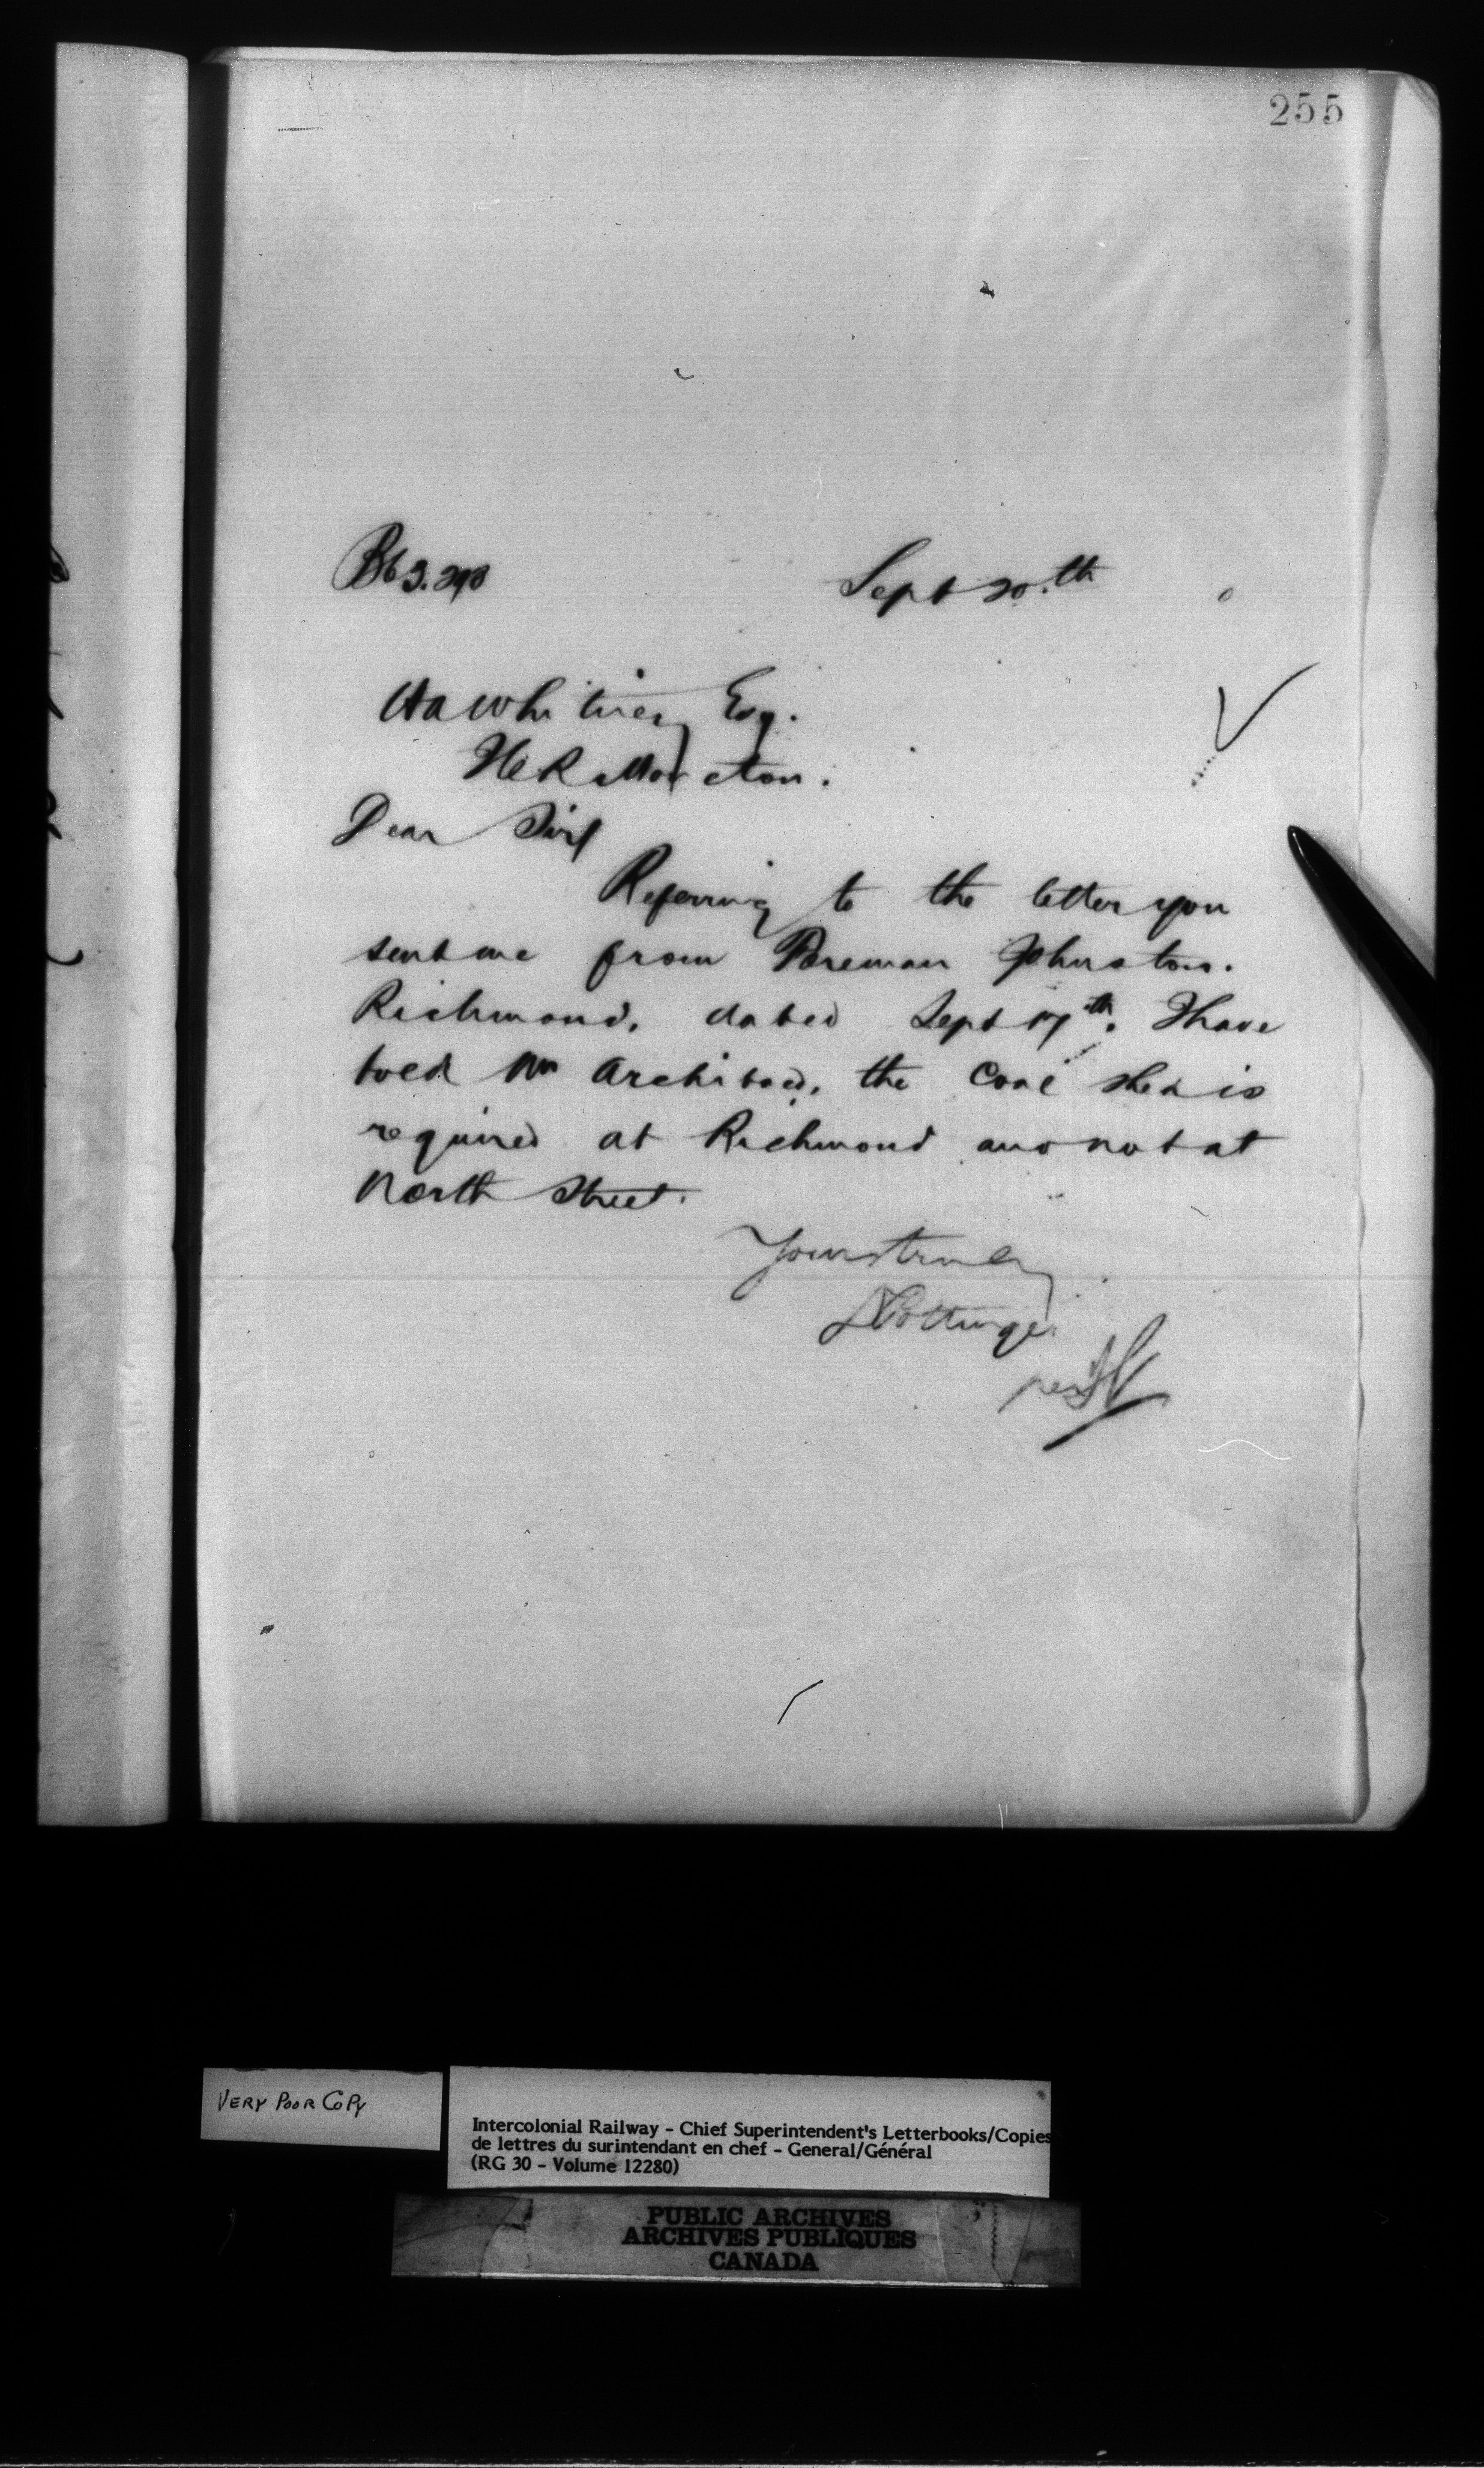 255
Sept 20.th
HA Whitney Esq.
Moncton.
Dear Sir
Referring to the letter you
sent me from Foreman Johnston.
Richmond, dated Sept 17th. I have
told Mr Archibald, the Coal shed is
required at Richmond and not at
North Street.
Yours truly
D Pottinger
per
VERY POOR COPY
Intercolonial Railway - Chief Superintendent's Letterbooks/Copies
de lettres du surintendant en chef - General/Général
(RG 30 - Volume 12280)
PUBLIC ARCHIVES
ARCHIVES PUBLIQUES
CANADA